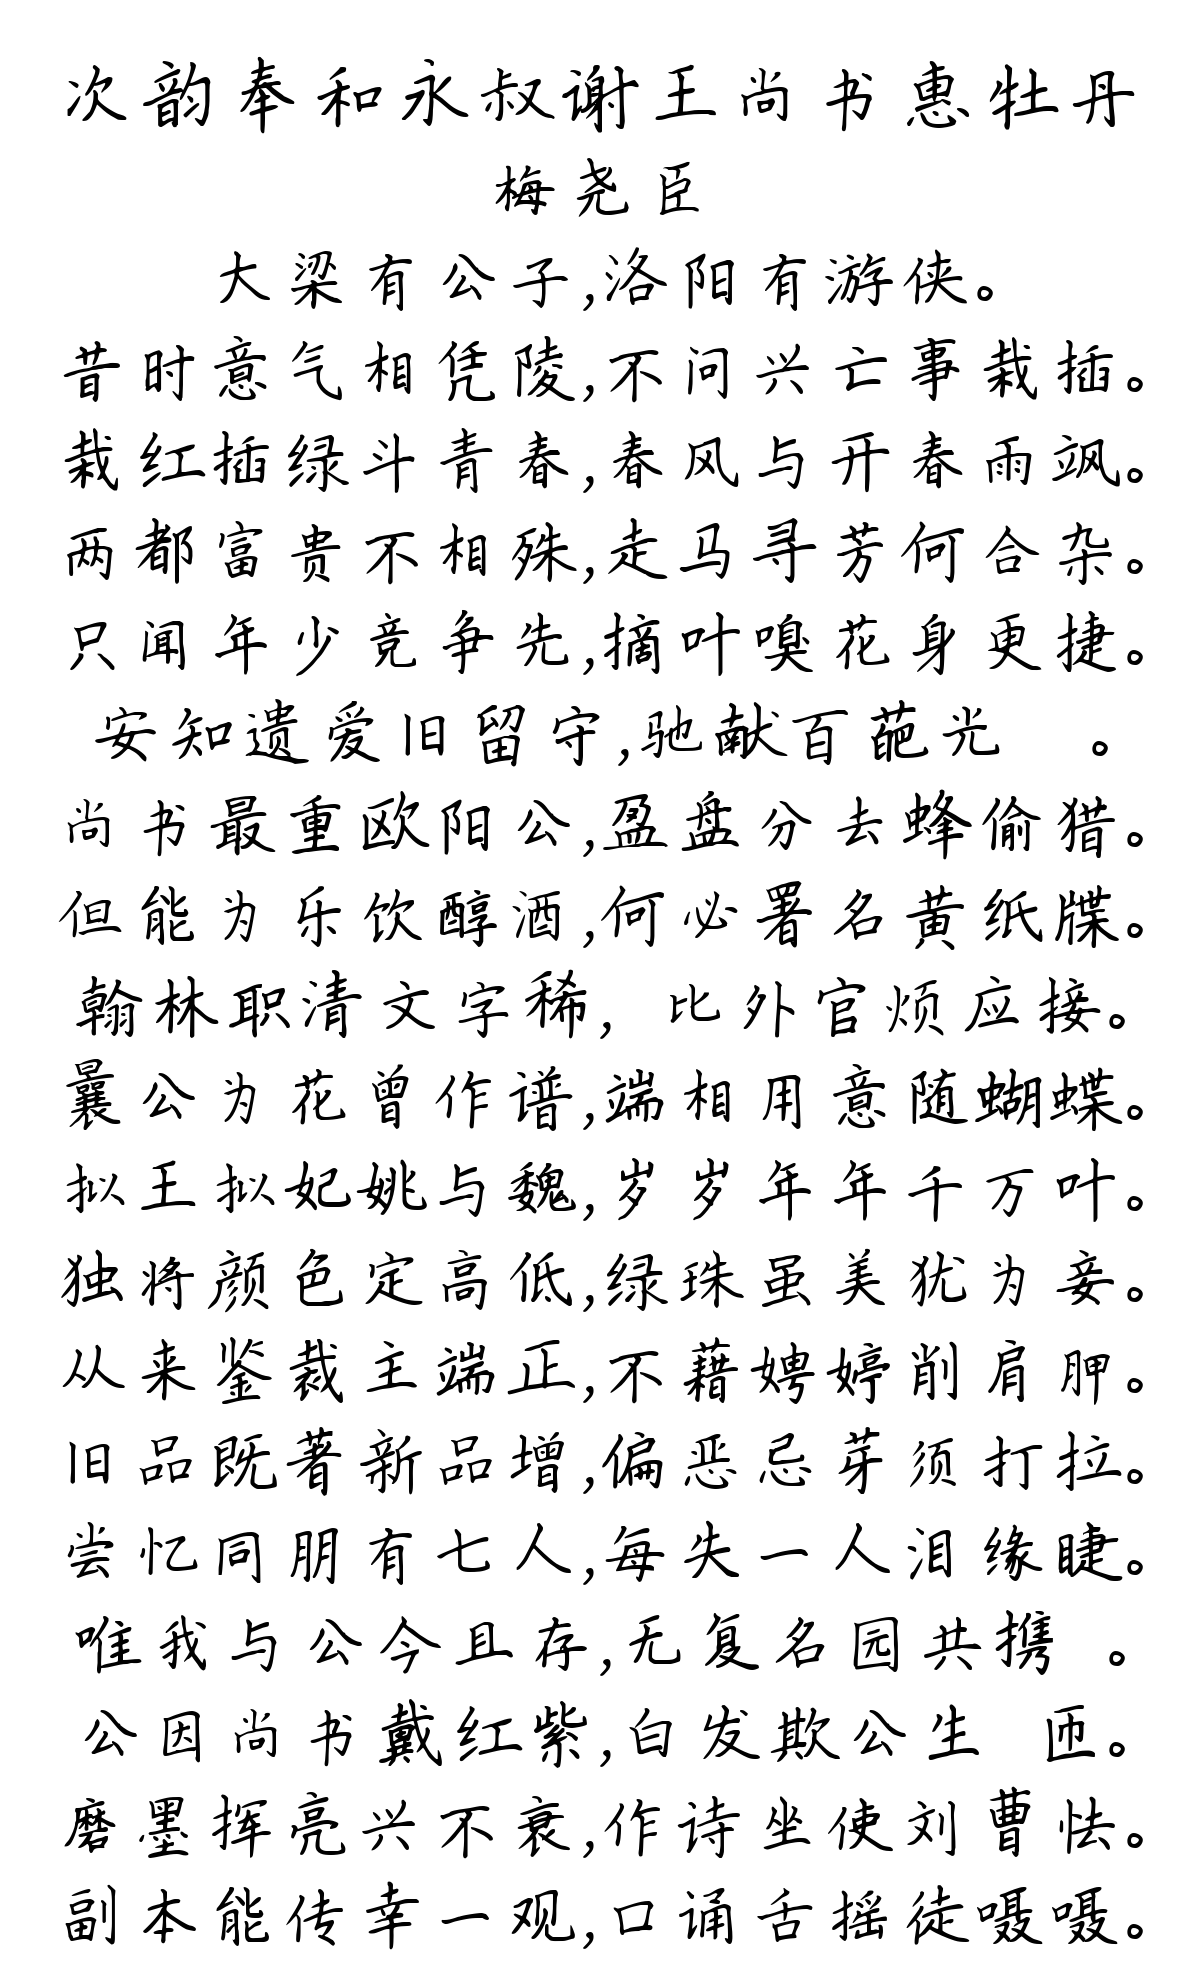 次韵奉和永叔谢王尚书惠牡丹
梅尧臣
大梁有公子,洛阳有游侠。
昔时意气相凭陵,不问兴亡事栽插。
栽红插绿斗青春,春风与开春雨飒。
两都富贵不相殊,走马寻芳何合杂。
只闻年少竞争先,摘叶嗅花身更捷。
安知遗爱旧留守,驰献百葩光 。
尚书最重欧阳公,盈盘分去蜂偷猎。
但能为乐饮醇酒,何必署名黄纸牒。
翰林职清文字稀, 比外官烦应接。
曩公为花曾作谱,端相用意随蝴蝶。
拟王拟妃姚与魏,岁岁年年千万叶。
独将颜色定高低,绿珠虽美犹为妾。
从来鉴裁主端正,不藉娉婷削肩胛。
旧品既著新品增,偏恶忌芽须打拉。
尝忆同朋有七人,每失一人泪缘睫。
唯我与公今且存,无复名园共携 。
公因尚书戴红紫,白发欺公生 匝。
磨墨挥亮兴不衰,作诗坐使刘曹怯。
副本能传幸一观,口诵舌摇徒嗫嗫。